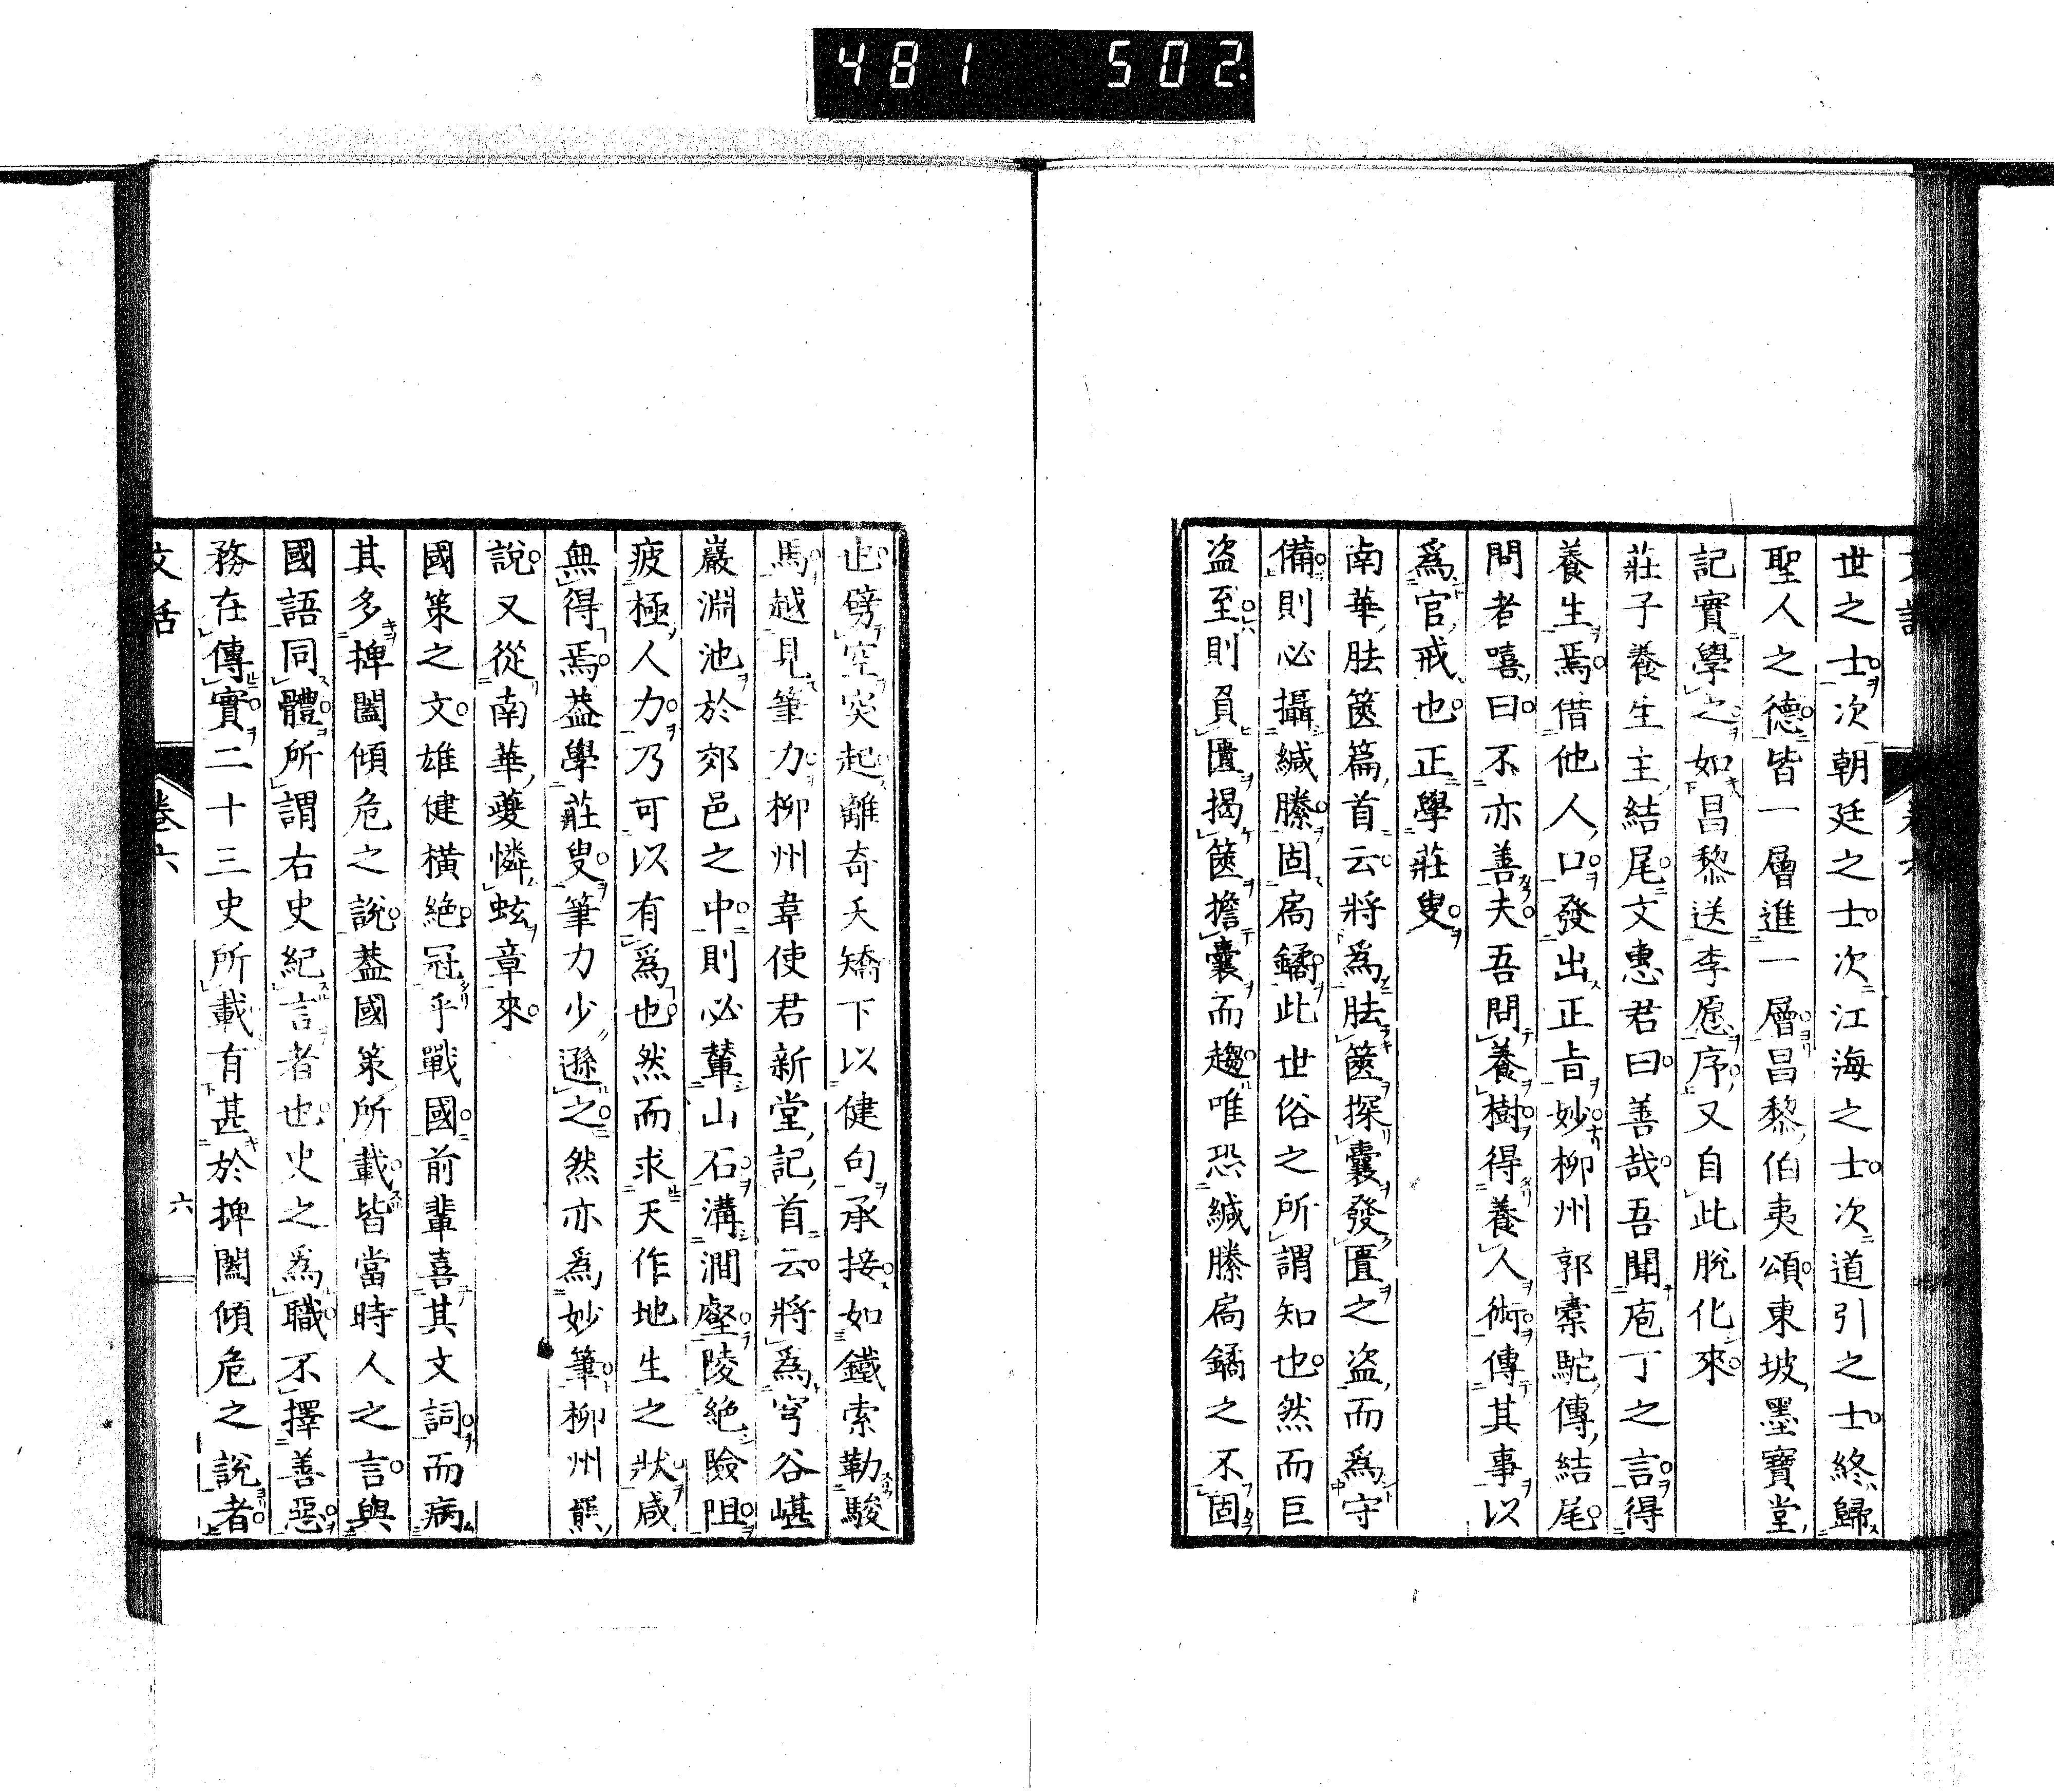 481 502
世之士次朝廷之士次江海之士次道引之士終歸
聖人之德皆一層進一層昌黎伯夷頌東坡墨寶堂
記實學之如昌黎送李愿序又自此脫化來
莊子養生主結尾文惠君曰善哉吾聞庖丁之言得
養生焉借他人口發出正旨妙柳州郭槖駝傳結尾
問者嘻曰不亦善夫吾問養樹得養人術傳其事以
爲官戒也正學莊叟
南華胠篋篇首云將爲胠篋探囊發匱之盜而爲守
備則必攝緘縢固扃鐍此世俗之所謂知也然而巨
盜至則負匱揭篋擔囊而趨唯恐緘縢扃鐍之不固
也劈空突起離奇夭矯下以健句承接如鐵索勒駿
馬越見筆力柳州韋使君新堂記首云將爲穹谷嵁
巖淵池於郊邑之中則必輦山石溝澗壑陵絕險阻
疲極人力乃可以有爲也然而求天作地生之狀咸
無得焉葢學莊叟筆力少遜之然亦爲妙筆柳州羆
說又從南華夔憐蚿章來
國策之文雄健橫絕冠乎戰國前輩喜其文詞而病
其多捭闔傾危之說葢國策所載皆當時人之言與
國語同體所謂右史紀言者也史之爲職不擇善惡
務在傳實二十三史所載有甚於捭闔傾危之說者
文話
卷六
六